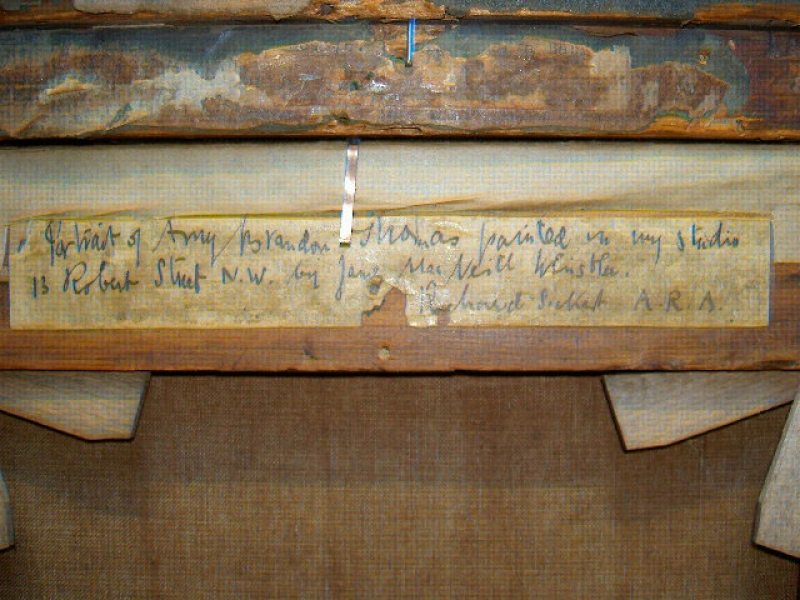 Portrait of Amy Brandon Thomas painted in my studio
13 Robert Street N.W. by James Mac Neill Whistler.
Richard Sickert A.R.A.